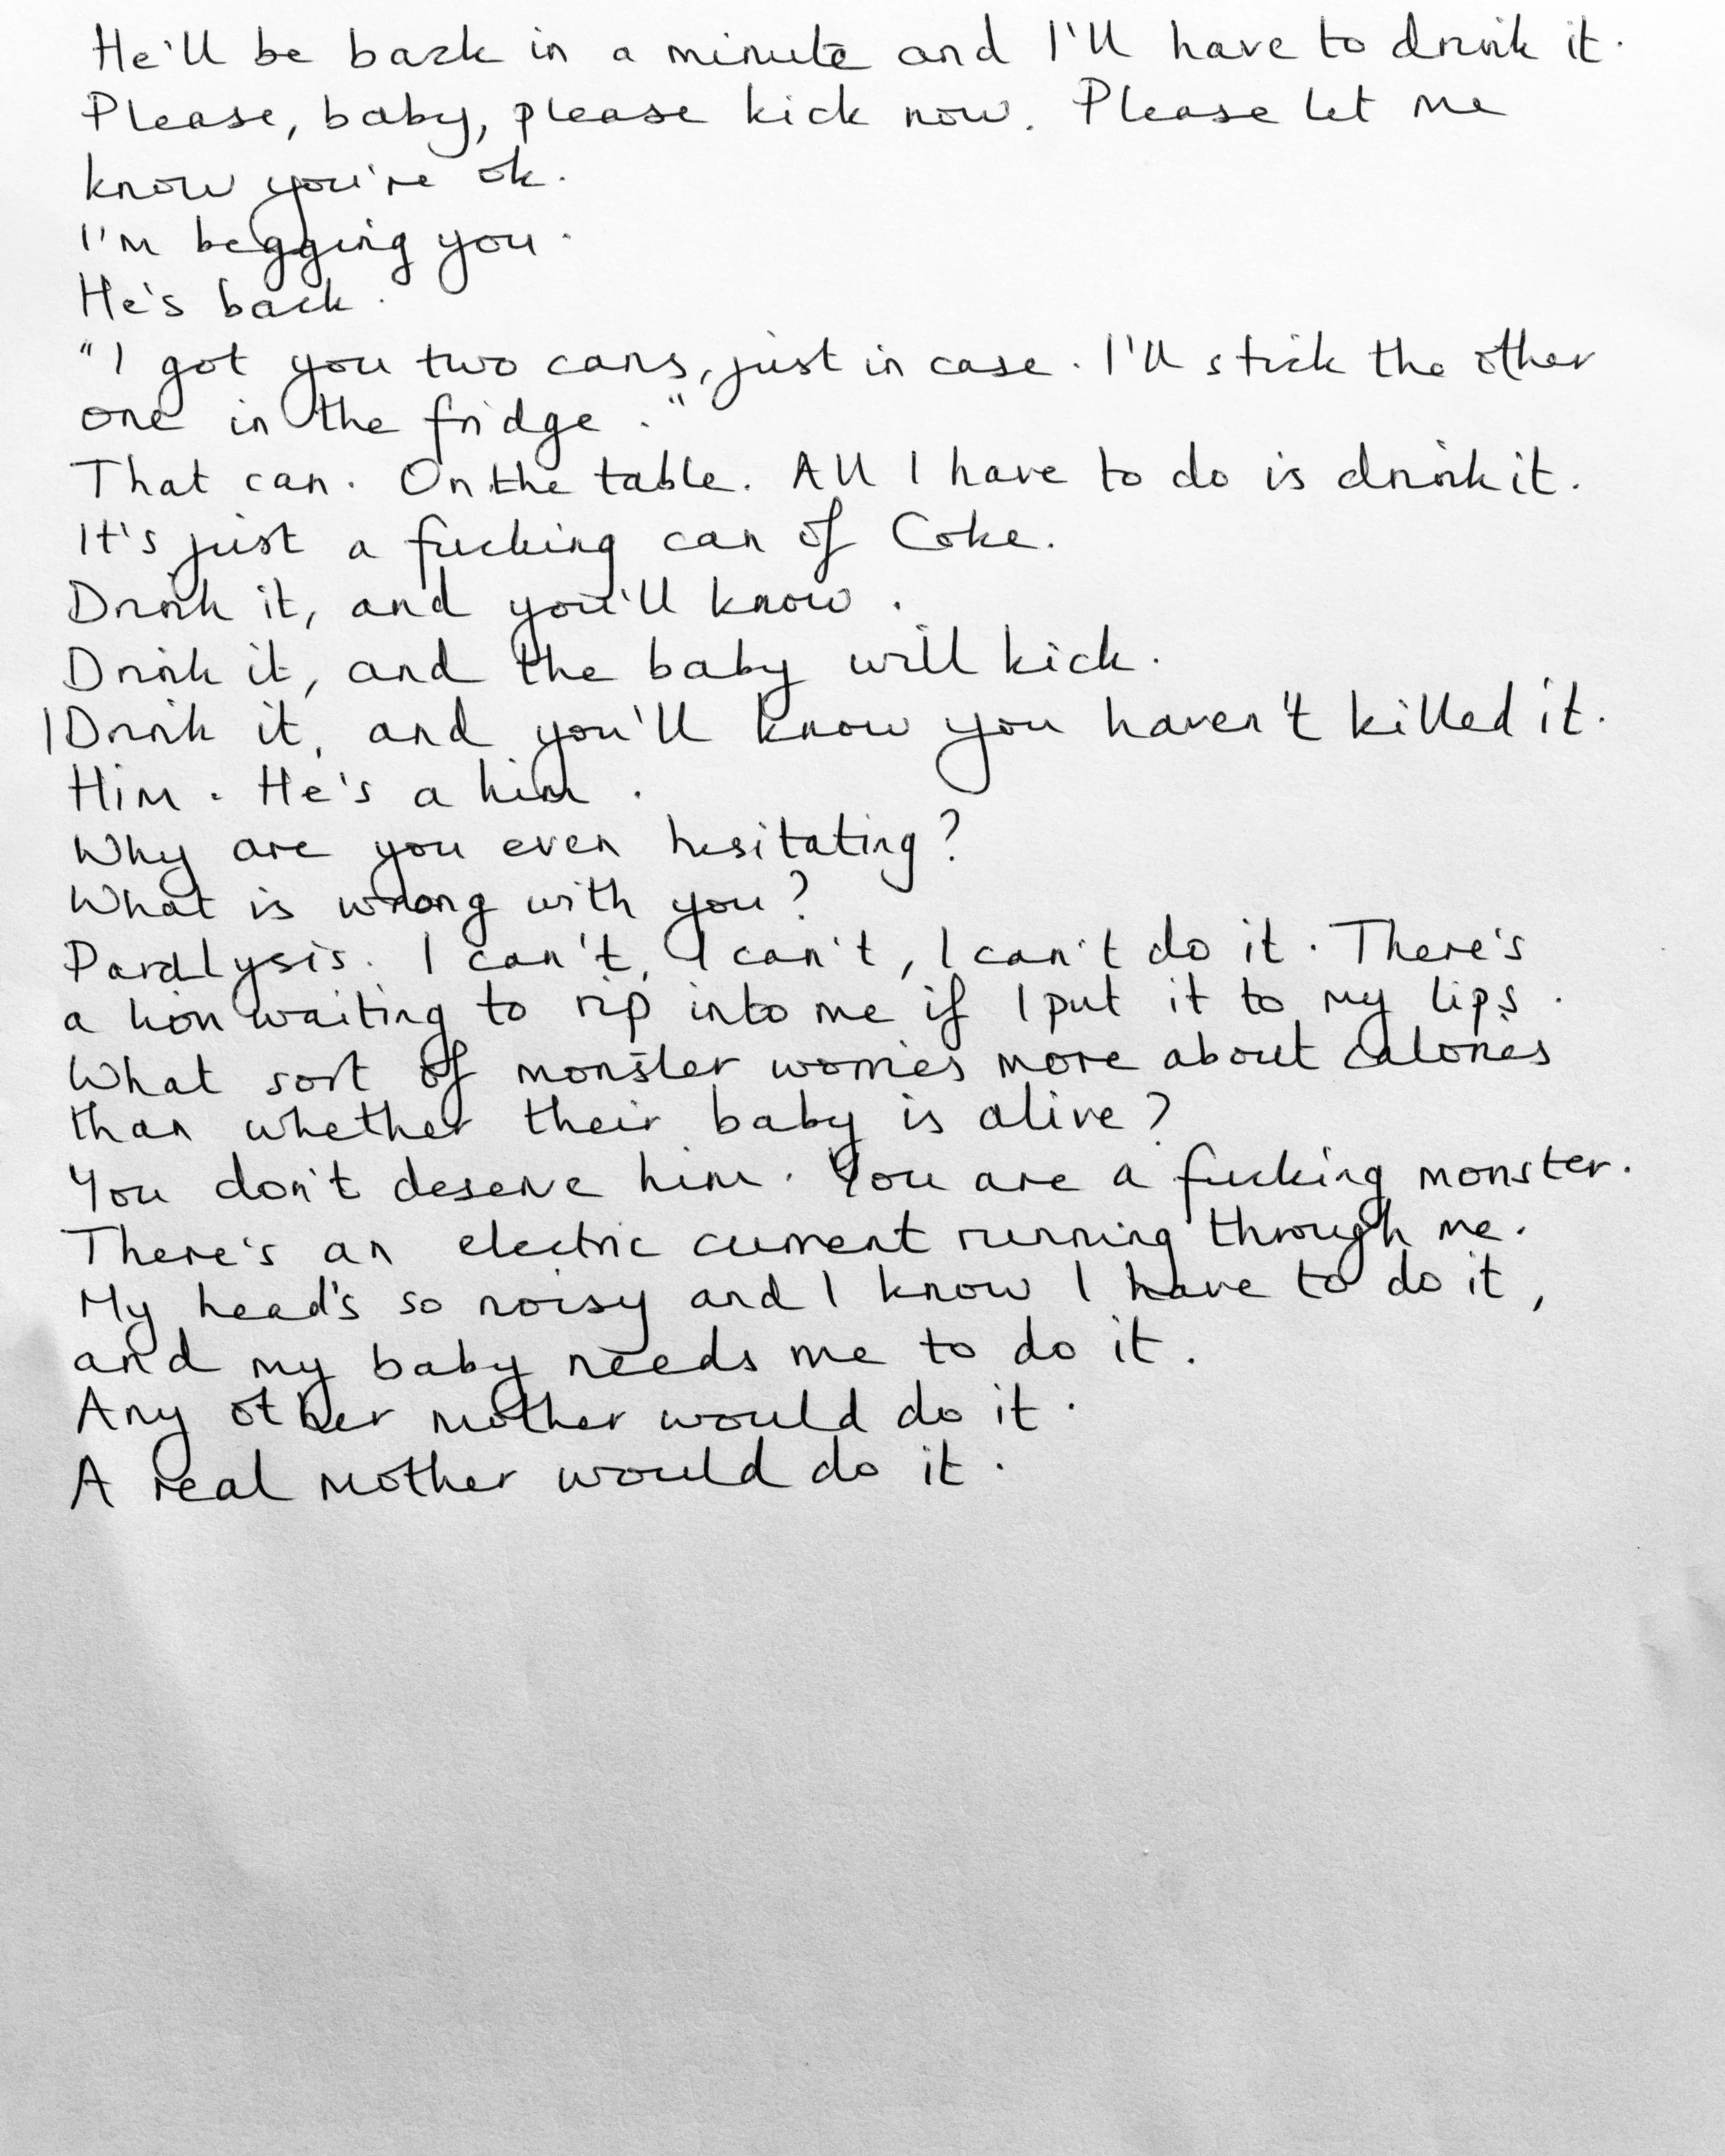 He'll be back in a minute and I'll have to drink it.
Please, baby, please kick now. Please let me
know you're ok.
I'm begging you.
He's back.
"I got you two cans, just in case. I'll stick the other
one in the fridge."
That can. On the table. All I have to do is drink it.
It's just a fucking can of Coke.
Drink it, and you'll know.
Drink it, and the baby will kick.
Drink it, and you'll know you haven't killed it.
Him. He's a him.
Why are you even hesitating?
What is wrong with you?
Paralysis. I can't, I can't, I can't do it. There's
a lion waiting to rip into me if I put it to my lips.
What sort of monster worries more about calories
than whether their baby is alive?
You don't deserve him. You are a fucking monster.
There's an electric current running through me.
My head's so noisy and I know I have to do it,
and my baby needs me to do it.
Any other mother would do it.
A real mother would do it.